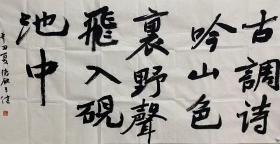 古調詩
吟山色
裏野聲
飛入硯
池中
辛丑夏